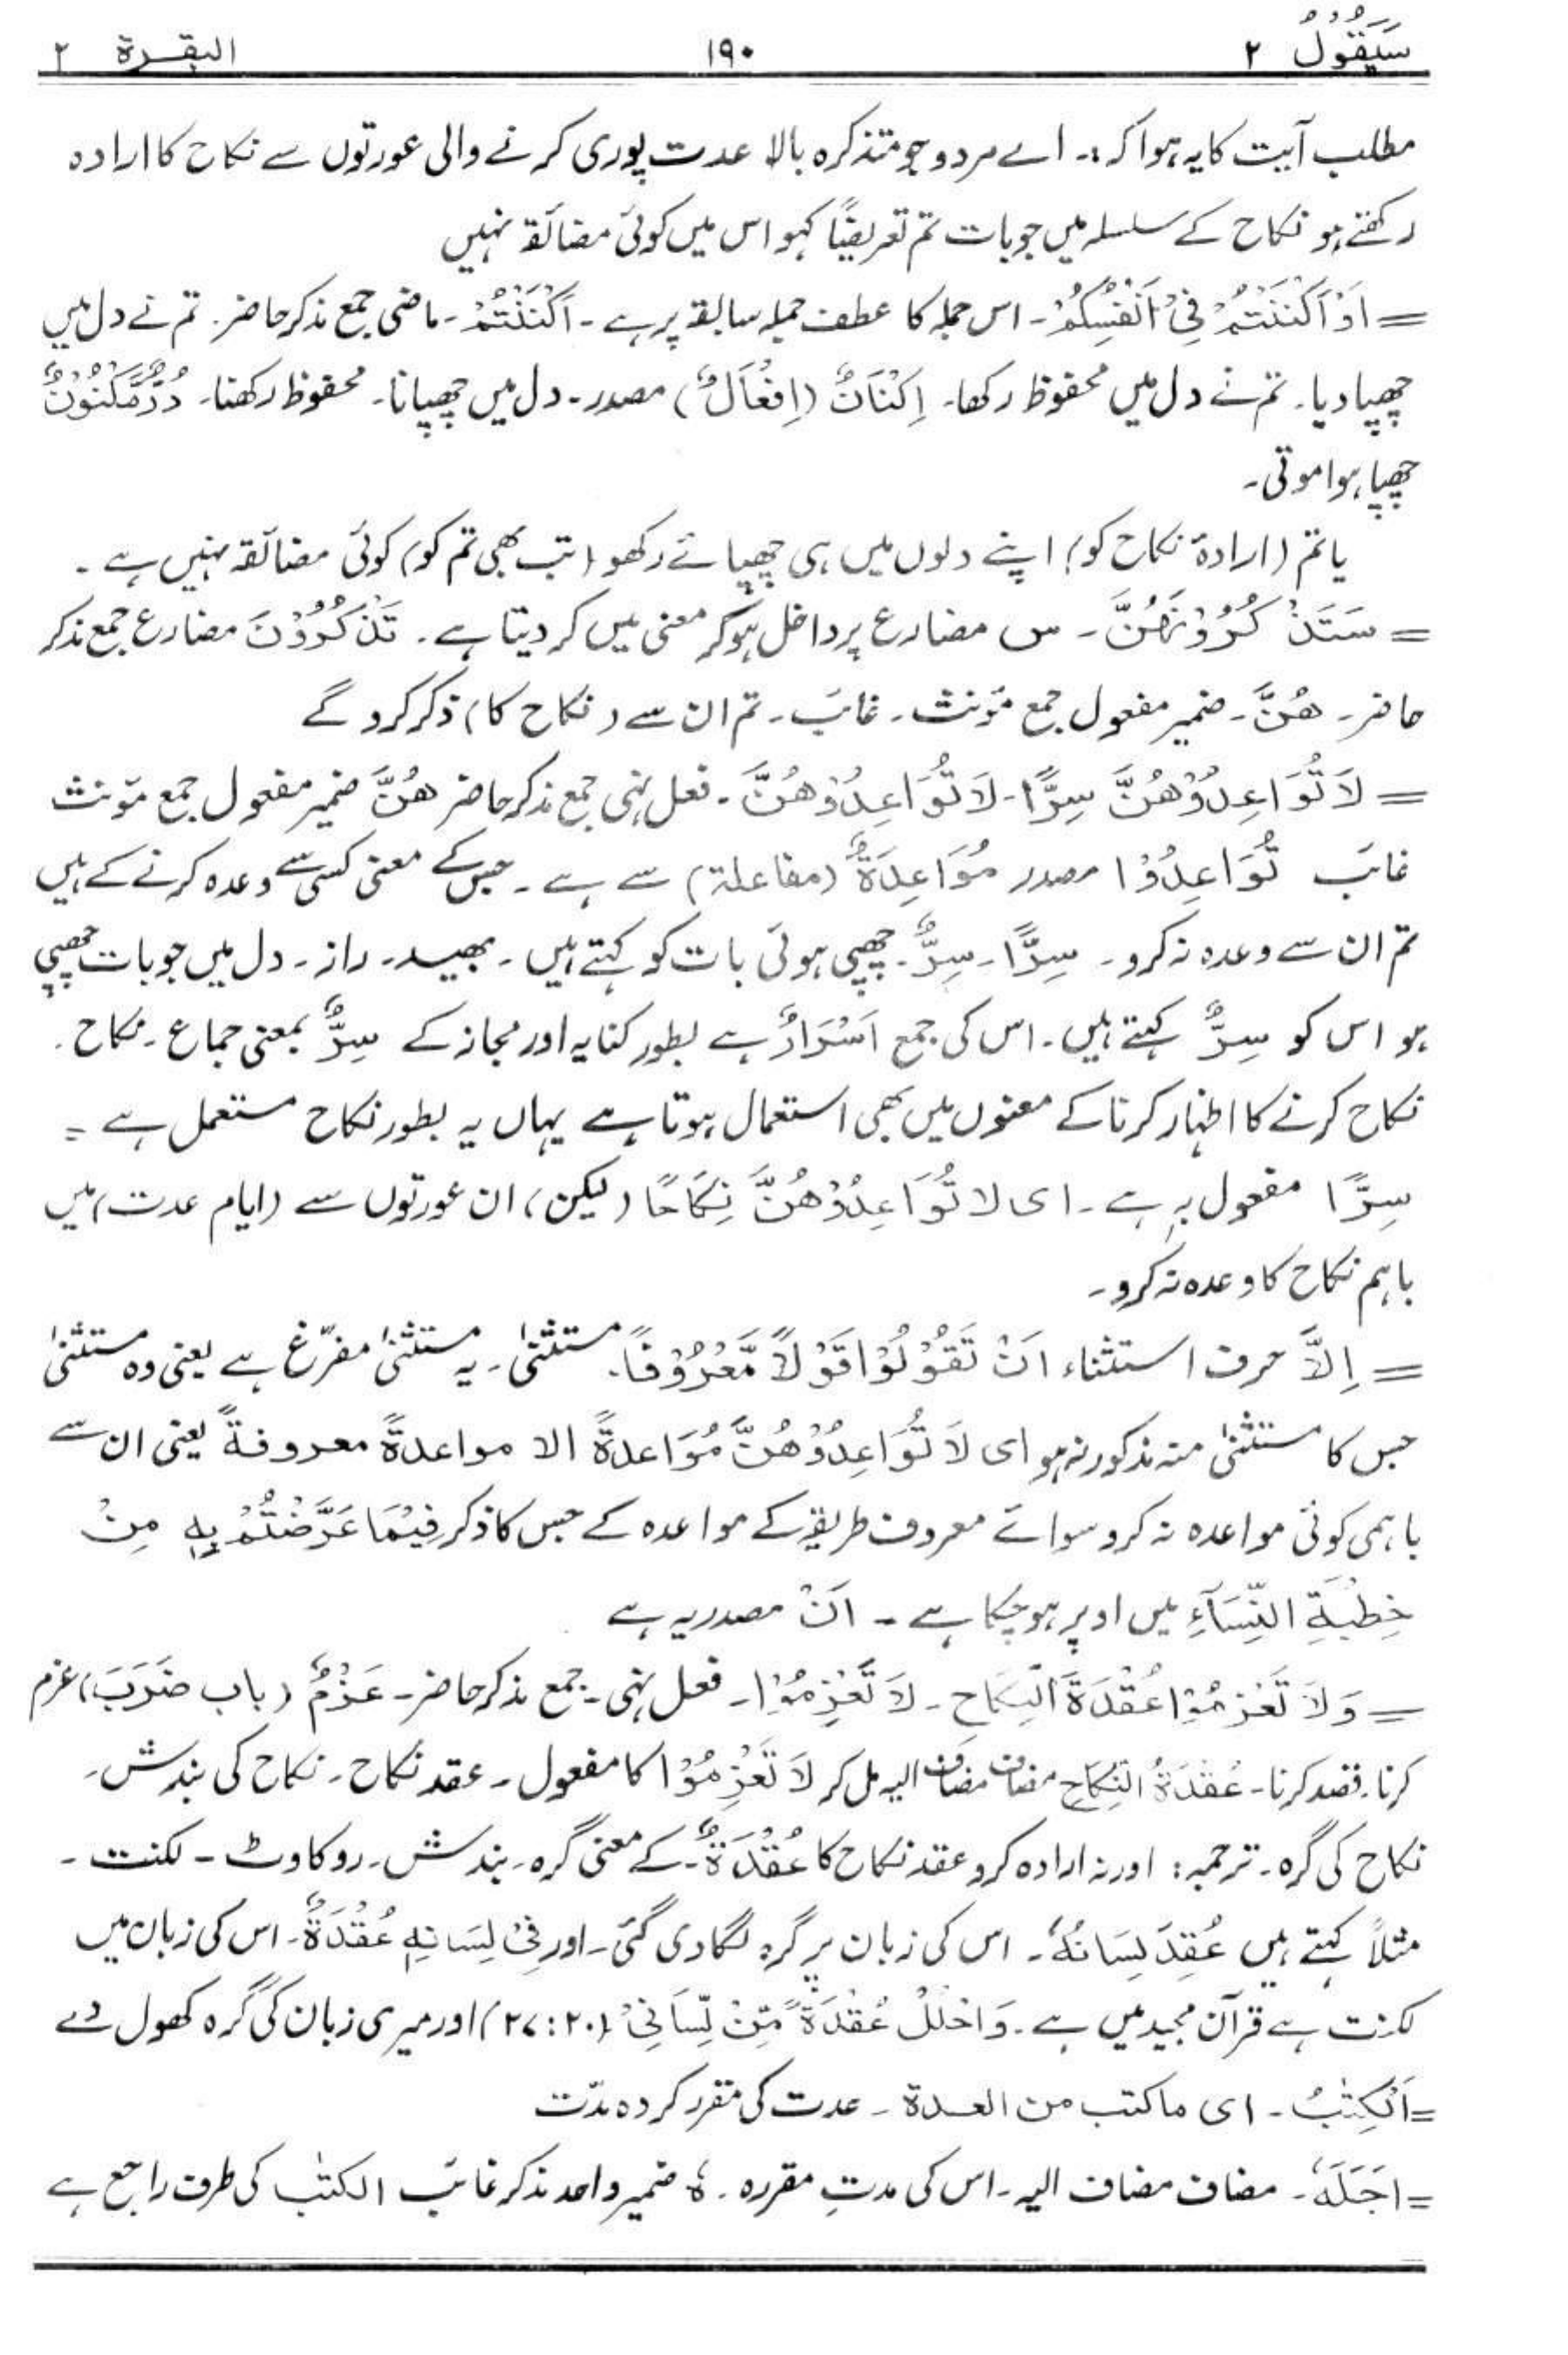 سَیَقُوْلُ ۲ ۱۹۰ البقرة ۲
مطلب آیت کا یہ ہوا کہ:۔ اے مردو جو متذکرہ بالا عدت پوری کرنے والی عورتوں سے نکاح کا ارادہ
رکھتے ہو نکاح کے سلسلہ میں جو بات تم تعریضًا کہو اس میں کوئی مضائقہ نہیں
= اَوْ اَکْنَنْتُمْ فِیْ اَنْفُسِکُمْ۔ اس جملہ کا عطف جملہ سابقہ پر ہے۔ اَکْنَنْتُمْ۔ ماضی جمع مذکر حاضر۔ تم نے دل میں
چھپا دیا۔ تم نے دل میں محفوظ رکھا۔ اِکْنَانٌ (اِفْعَالٌ) مصدر۔ دل میں چھپانا۔ محفوظ رکھنا۔ دُرٌّمَّکْنُوْنٌ
چھپا ہوا موتی۔
یا تم (ارادۂ نکاح کو) اپنے دلوں میں ہی چھپائے رکھو (تب بھی تم کو) کوئی مضائقہ نہیں ہے۔
= سَتَذْ کُرُوْنَھُنَّ۔ س مضارع پر داخل ہوکر معنی میں کر دیتا ہے۔ تَذْکُرُوْنَ مضارع جمع مذکر
حاضر۔ ھُنَّ۔ ضمیر مفعول جمع مؤنث۔ غائب۔ تم ان سے (نکاح کا) ذکر کرو گے
= لَا تُوَاعِدُوْھُنَّ سِرًّا۔ لَا تُوَاعِدُوْھُنَّ۔ فعل نہی جمع مذکر حاضر ھُنَّ ضمیر مفعول جمع مؤنث
غائب تُوَاعِدُوْا مصدر مُوَاعِدَۃٌ (مفاعلۃ) سے ہے۔ جس کے معنی کسی سے وعدہ کرنے کے ہیں
تم ان سے وعدہ نہ کرو۔ سِرًّا۔ سِرٌّ۔ چھپی ہوئی بات کو کہتے ہیں۔ بھید۔ راز۔ دل میں جو بات چھپی
ہو اس کو سِرٌّ کہتے ہیں۔ اس کی جمع اَسْرَارٌ ہے بطور کنایہ اور مجاز کے سِرٌّ بمعنی جماع۔ نکاح۔
نکاح کرنے کا اظہار کرنا کے معنوں میں بھی استعمال ہوتا ہے یہاں یہ بطور نکاح مستعمل ہے =
سِرًّا مفعول بہٖ ہے۔ ای لا تُوَاعِدُوْھُنَّ نِکَاحًا (لیکن) ان عورتوں سے (ایام عدت) میں
باہم نکاح کا وعدہ نہ کرو۔
= اِلَّا حرف استثناء اَنْ تَقُوْلُوْا قَوْلًا مَّعْرُوْفًا۔ مستثنیٰ۔ یہ مستثنیٰ مفرّغ ہے یعنی وہ مستثنیٰ
جس کا مستثنیٰ منہ مذکور نہ ہو ای لَا تُوَاعِدُوْھُنَّ مُوَاعدۃً الا مواعدۃً معروفۃً یعنی ان سے
باہمی کوئی مواعدہ نہ کرو سوائے معروف طریقہ کے مواعدہ کے جس کا ذکر فِیْمَا عَرَّضْتُمْ بِہٖ مِنْ
خِطْبَۃِ النِّسَآءِ میں اوپر ہو چکا ہے۔ اَنْ مصدریہ ہے
= وَلَا تَعْزِمُوْا عُقْدَۃَ النِّکَاحِ۔ لَا تَعْزِمُوْا۔ فعل نہی۔ جمع مذکر حاضر۔ عَزْمٌ (باب ضَرَبَ) عزم
کرنا۔ قصد کرنا۔ عُقْدَۃُ النِّکَاحِ مضاف مضاف الیہ مل کر لَا تَعْزِمُوْا کا مفعول۔ عقد نکاح۔ نکاح کی بندش۔
نکاح کی گرہ۔ ترجمہ: اور نہ ارادہ کرو عقد نکاح کا عُقْدَۃٌ۔ کے معنی گرہ۔ بندش۔ روکاوٹ۔ لکنت۔
مثلاً کہتے ہیں عُقِدَ لِسَانُہٗ۔ اس کی زبان پر گرہ لگا دی گئی۔ اور فِیْ لِسَانِہٖ عُقْدَۃٌ۔ اس کی زبان میں
لکنت ہے قرآن مجید میں ہے۔ وَاحْلُلْ عُقْدَۃً مِّنْ لِّسَانِیْ (۲۰:۲۷) اور میری زبان کی گرہ کھول دے
= اَلْکِتٰبُ۔ ای ما کتب من العدۃ۔ عدت کی مقرر کردہ مدّت
= اَجَلَہٗ۔ مضاف مضاف الیہ۔ اس کی مدتِ مقررہ۔ ہٗ ضمیر واحد مذکر غائب الکتٰب کی طرف راجع ہے